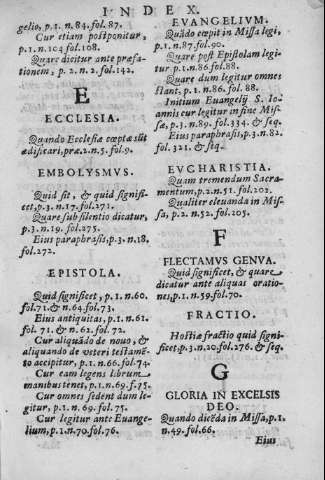 INDEX.
gelio, p.1. n. 84. fol. 87.
Cur etiam postponitur,
p.1. n. 104 fol. 108.
Quare dicitur ante præfa-
tionem, p. 2. n. 2. fol. 142.
E
ECCLESIA.
Quando Ecclesiæ cœptæ sūt
ædificari, præ. 2. n. 5. fol. 9.
EMBOLYSMVS.
Quid sit, & quid signifi-
cet, p.3. n. 17. fol. 271.
Quare sub silentio dicatur,
p.3. n. 19. fol. 275.
Eius paraphrasis, p.3. n. 18.
fol. 272.
EPISTOLA.
Quid significet, p. 1. n. 60.
fol. 71. & n. 64. fol. 73.
Eius antiquitas, p. 1. n. 61.
fol. 71. & n. 62. fol. 72.
Cur aliquādo de nouo, &
aliquando de veteri testamē-
to accipitur, p. 1. n. 66. fol. 74.
Cur eam legens librum
manibus tenet, p. 1. n. 69. f. 75.
Cur omnes sedent dum le-
gitur, p. 1. n. 69. fol. 75.
Cur legitur ante Euange-
lium, p. 1. n. 70. fol. 76.
EVANGELIVM.
Quādo cœpit in Missa legi,
p. 1. n. 87. fol. 90.
Quare post Epistolam legi-
tur, p. 1. n. 86. fol. 88.
Quare dum legitur omnes
stant, p. 1. n. 86. fol. 88.
Initium Euangelij S. Io-
annis cur legitur in fine Mis-
sæ, p. 1. n. 89. fol. 334. & seq.
Eius paraphrasis, p. 3. n. 82.
fol. 321. & seq.
EVCHARISTIA.
Quam tremendum Sacra-
mentum, p. 2. n. 51. fol. 202.
Qualiter eleuanda in Mis-
sa, p. 2. n. 52. fol. 205.
F
FLECTAMVS GENVA.
Quid significet, & quare
dicatur ante aliquas oratio-
nes, p. 1. n. 59. fol. 70.
FRACTIO.
Hostiæ fractio quid signi-
ficet, p. 3. n. 20. fol. 276. & seq.
G
GLORIA IN EXCELSIS
DEO.
Quando dicēda in Missa, p. 1.
n. 49. fol. 66.
Eius